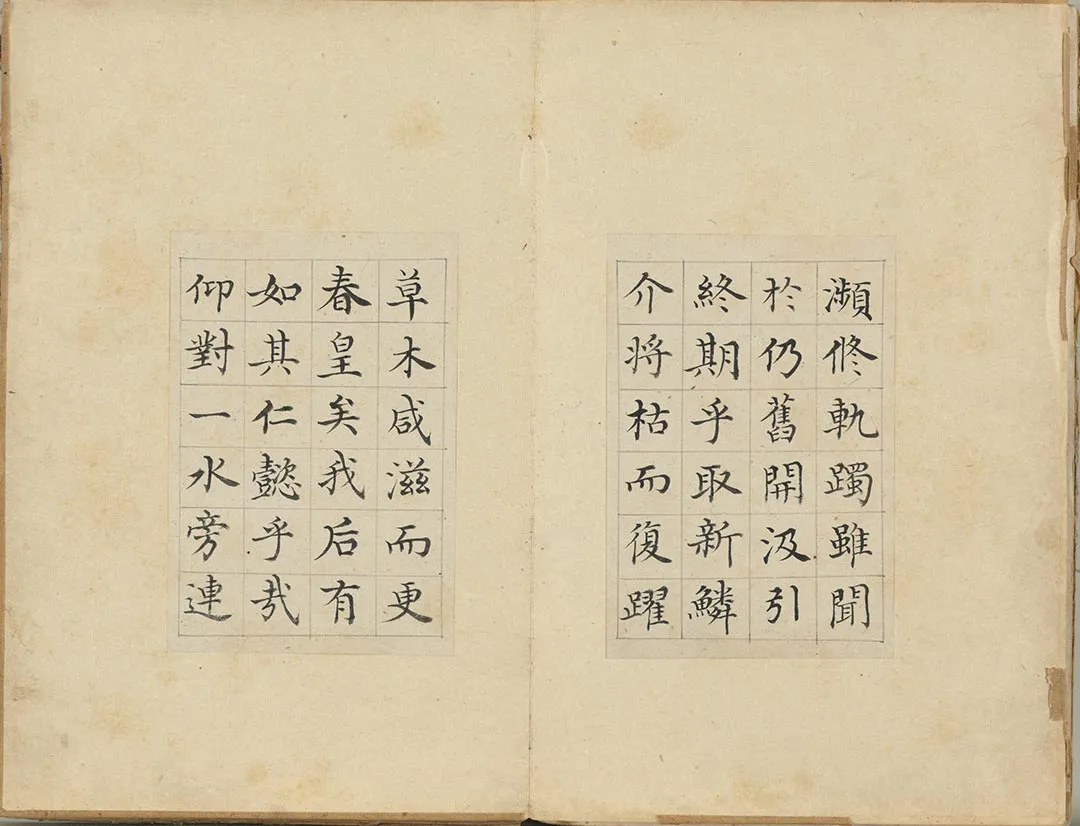 瀕修軌躅雖聞
於仍舊開汲引
終期乎取新鱗
介將枯而復躍
草木咸滋而更
春皇矣我后有
如其仁懿乎哉
仰對一水旁連